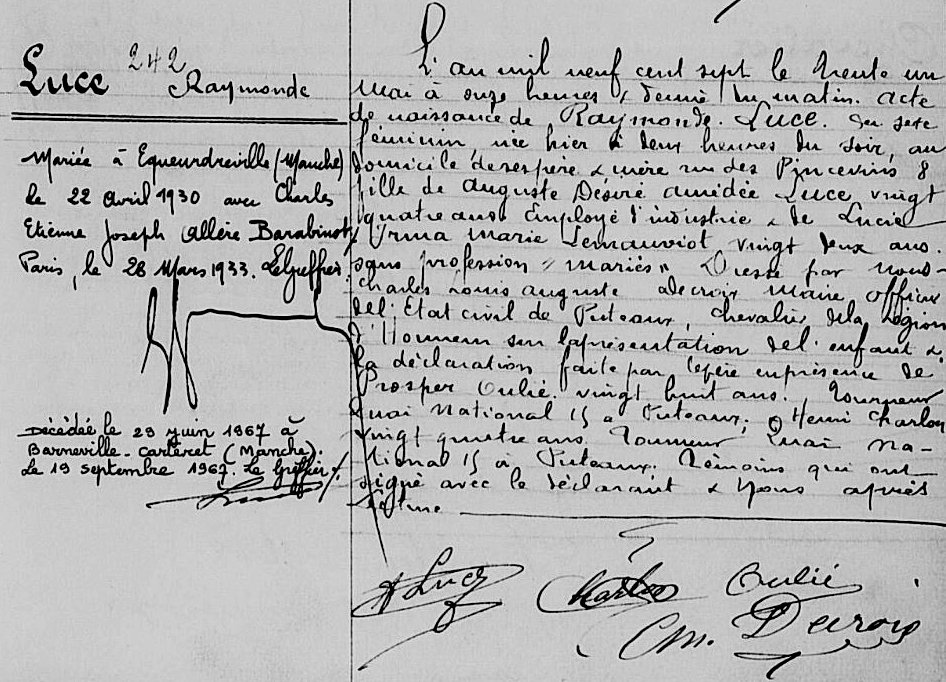 242
Luce
Raymonde
Mariée à Equeurdreville (Manche)
le 22 avril 1930 avec Charles
Etienne Joseph Allère Barabinot
Paris, le 28 Mars 1933. Le Greffier
Décédée le 29 juin 1967 à
Barneville-Carteret (Manche).
Le 19 septembre 1967. Le Greffier
L'an mil neuf cent sept le trente un
Mai à onze heures & demie du matin. acte
de naissance de Raymonde. Luce. du sexe
féminin, née hier à deux heures du soir, au
domicile de ses père & mère rue des Pincevins 8
fille de Auguste Désiré Amédée Luce, vingt
quatre ans Employé d'industrie & de Lucie
Irma Marie Lemauviot, vingt deux ans.
sans profession "mariés". Dressé par nous
Charles Louis Auguste Maire, officier
de l'Etat civil de Puteaux, chevalier de la Légion
d'Honneur sur la présentation de l'enfant &
la déclaration faite par le père en présence de
Prosper Oulié. vingt huit ans. Tourneur
Quai National 15 à Puteaux; & Henri Charlon
vingt quatre ans. Tourneur Quai Na-
tional 15 à Puteaux. Témoins qui ont
signé avec le déclarant & Nous après
lecture
A Luce Oulié